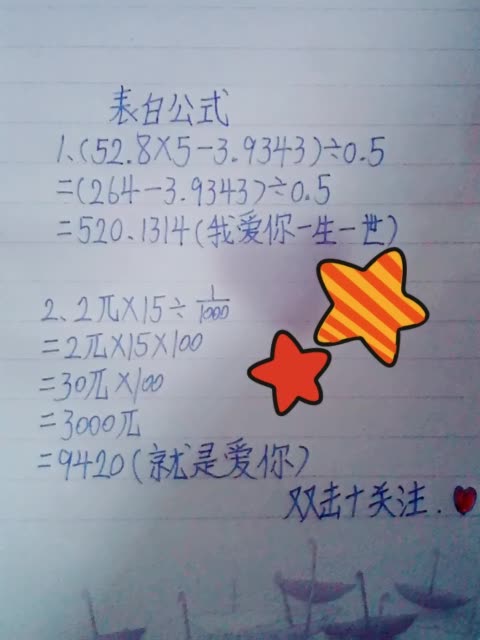 表白公式
1、(52.8×5-3.9343)÷0.5
=(264-3.9343)÷0.5
=520.1314(我爱你一生一世)
2、2兀×15÷1/1000
=2兀×15×100
=30兀×100
=3000兀
=9420(就是爱你)
双击十关注.